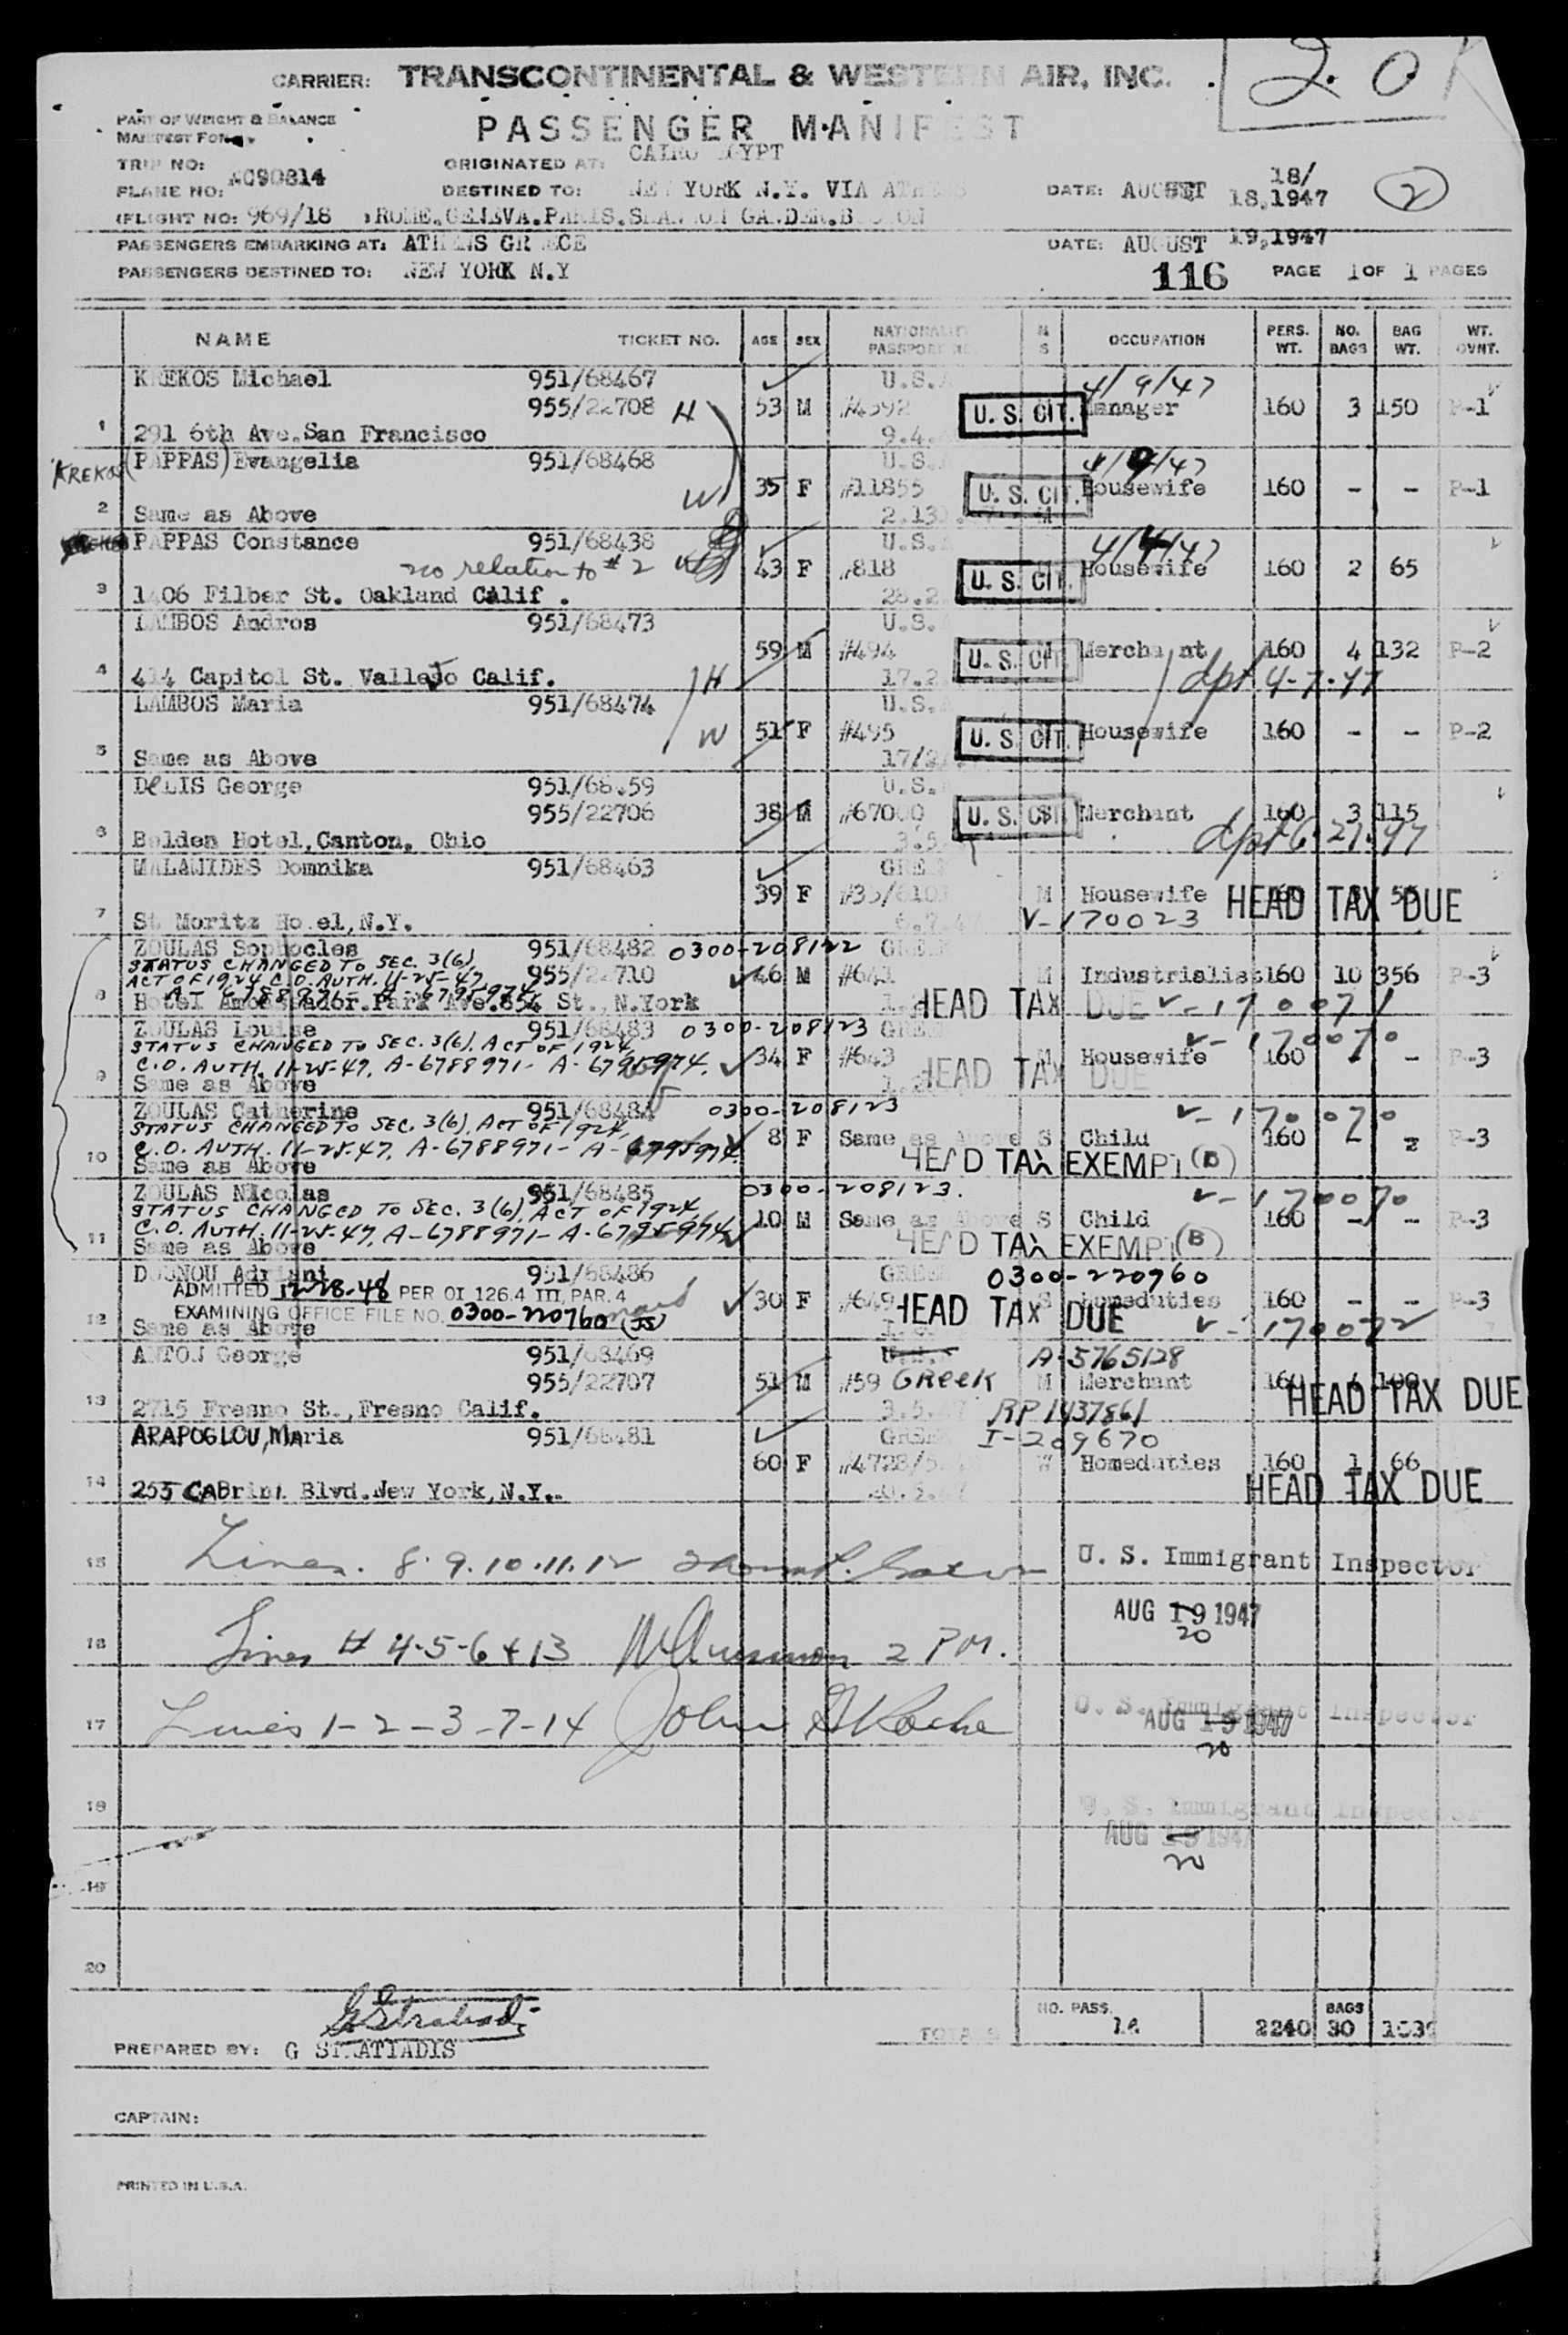 2. 0 K
CARRIER: TRANSCONTINENTAL & WESTERN AIR, INC.
PART OF WEIGHT & BALANCE
MANIFEST FORM
PASSENGER MANIFEST
TRIP NO:
ORIGINATED AT: CAIRO EGYPT
PLANE NO: NC90814
DESTINED TO: NEW YORK N.Y. VIA ATHENS
DATE: AUGUST 18/ 18,1947
2
FLIGHT NO: 969/18 ROME.GENEVA.PARIS.SHANNON GANDER.BOSTON
PASSENGERS EMBARKING AT: ATHENS GREECE
DATE: AUGUST 19,1947
PASSENGERS DESTINED TO: NEW YORK N.Y
116 PAGE 1 OF 1 PAGES
NAME TICKET NO. AGE SEX NATIONALITY PASSPORT NO. M S OCCUPATION PERS. WT. NO. BAGS BAG WT. WT. GVNT.
KREKOS Michael 951/68467 U.S. 4/9/47
955/22708 H 53 M #4592 U. S. CIT. Manager 160 3 150 P-1
1 291 6th Ave.San Francisco 9.4.
KREKOS (PAPPAS) Evangelia 951/68468 U.S. 4/9/47
W 35 F #11855 U. S. CIT. Housewife 160 - - P-1
2 Same as Above 2.13
PAPPAS Constance 951/68438 U.S. 4/4/47
no relation to #2 43 F #818 U. S. CIT. Housewife 160 2 65
3 1406 Filber St. Oakland Calif . 28.2
LAMBOS Andros 951/68473 U.S.
59 M #494 U. S. CIT. Merchant 160 4 132 P-2
4 414 Capitol St. Vallejo Calif. H 17.2 dpt 4-7-47
LAMBOS Maria 951/68474 U.S.
W 51 F #495 U. S. CIT. Housewife 160 - - P-2
5 Same as Above 17/2
DeLIS George 951/68 59 U.S.
955/22706 38 M #67000 U. S. CIT. Merchant 160 3 115
6 Belden Hotel,Canton, Ohio 3.5 dpt 6-21-47
MALAMIDES Domnika 951/68463
39 F #35/610 M Housewife 160 55 HEAD TAX DUE
7 St Moritz Hotel,N.Y. 6.7.4 V-170023
ZOULAS Sophocles 951/68482 0300-208122
STATUS CHANGED TO SEC. 3(6)
955/22710 46 M #641 M Industrialist 160 10 356 P-3
ACT OF 1924 C.O. AUTH. 11-25-47
A- 6788971 - A-6795974
8 Hotel Ambassador.Park Ave.&54 St.,N.York HEAD TAX DUE V-170071
ZOULAS Louise 951/68483 0300-208123 V-170070
STATUS CHANGED TO SEC. 3(6), ACT OF 1924,
C.O. AUTH. 11-25-47, A-6788971- A-6795974. 34 F #643 M Housewife 160 - - P-3
9 Same as Above HEAD TAX DUE
ZOULAS Catherine 951/68484 0300-208123 V-170070
STATUS CHANGED TO SEC. 3(6), ACT OF 1924,
C.O. AUTH. 11-25-47, A-6788971- A-6795974. 8 F Same as Above S Child 160 - 2 P-3
10 Same as Above HEAD TAX EXEMPT (B)
ZOULAS Nicolas 951/68485 0300-208123. V-170070
STATUS CHANGED TO SEC. 3(6), ACT OF 1924,
C.O. AUTH. 11-25-47, A-6788971- A-6795974 10 M Same as Above S Child 160 - - P-3
11 Same as Above HEAD TAX EXEMPT (B)
Adriani 951/68486 0300-220760
ADMITTED 12-28-48 PER OI 126.4 III, PAR. 4
EXAMINING OFFICE FILE NO. 0300-220760 (JS) maid 30 F #649 S Homeduties 160 - - P-3
12 Same as Above HEAD TAX DUE V-170072
ANTON George 951/68469 A-5765128
955/22707 51 M #59 GREEK M Merchant 160 HEAD TAX DUE
13 2715 Fresno St.,Fresno Calif. 3.5.47 RP 1437861
ARAPOGLOU,Maria 951/68481 I-209670
60 F #4728/5 W Homeduties 160 1 66
14 255 CABrini Blvd.New York,N.Y. HEAD TAX DUE
15 Lines. 8.9.10.11.12 U. S. Immigrant Inspector
AUG 19 1947
20
16 Lines # 4-5-6 & 13 2 PM.
17 Lines 1-2-3-7-14 John Roche U. S. Immigrant Inspector
AUG 19 1947
20
18 U. S. Immigrant Inspector
AUG 19 1947
20
19
20
TOTALS NO. PASS. 14 2240 BAGS 30
PREPARED BY: G STRATIADIS
CAPTAIN:
PRINTED IN U.S.A.